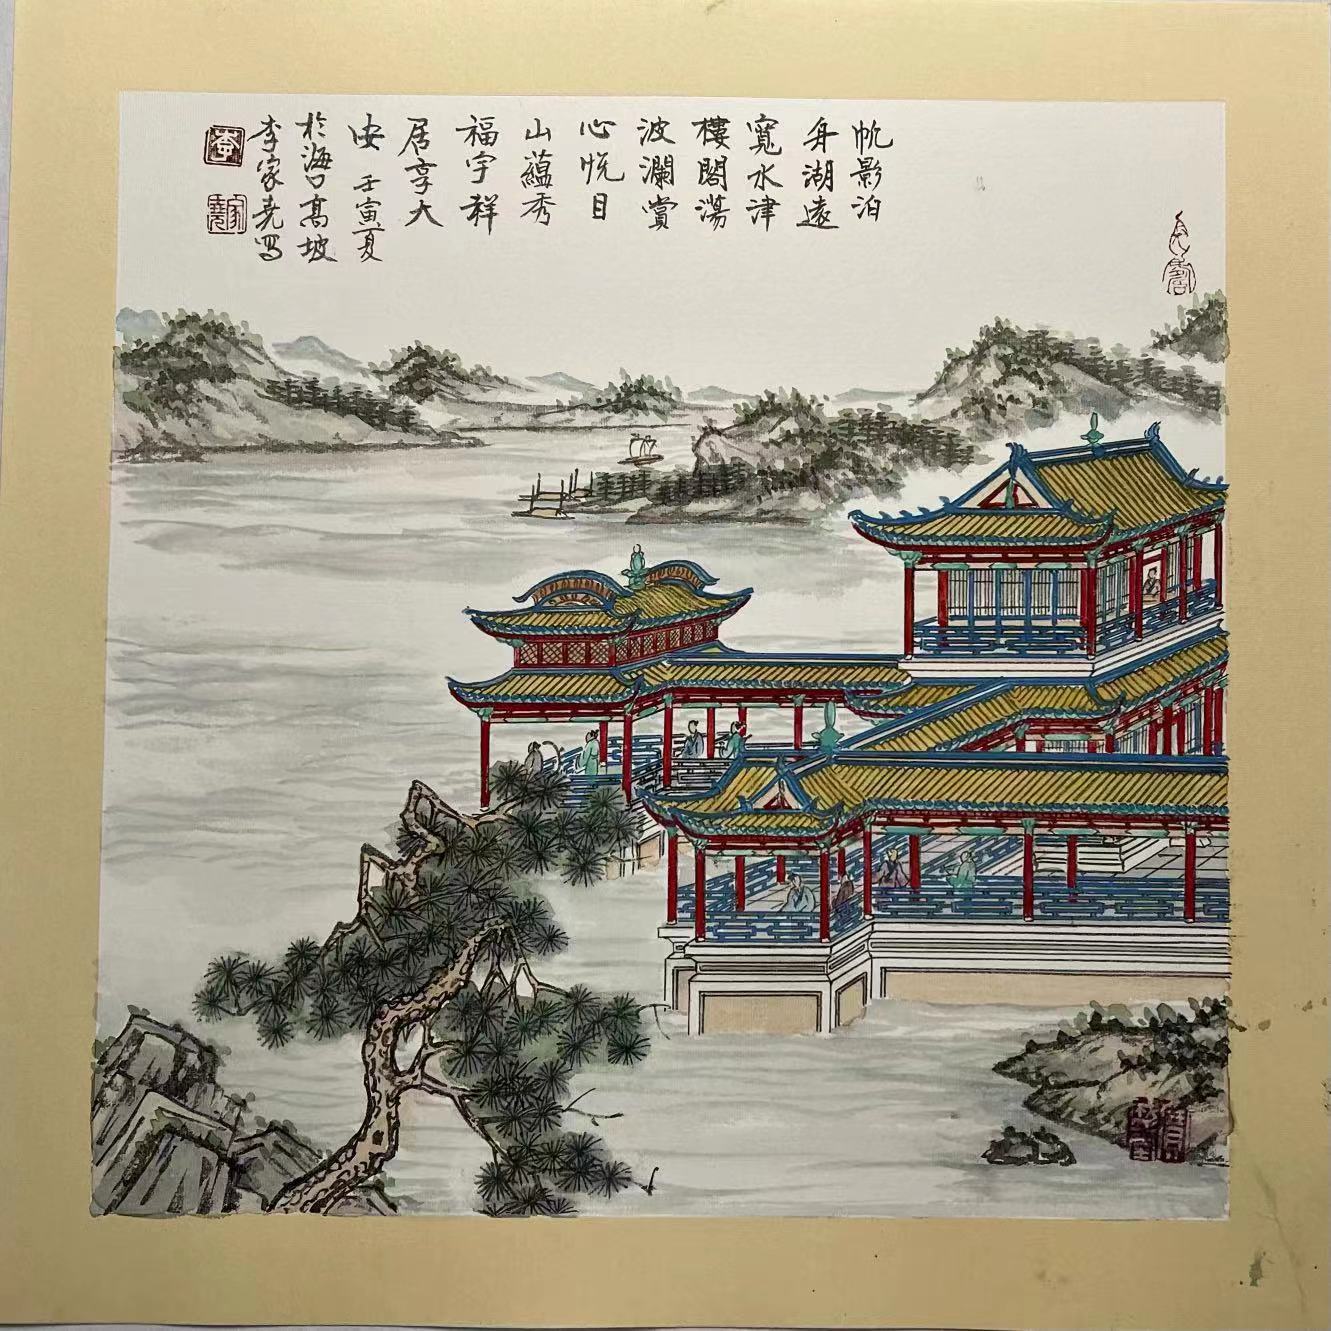 帆影泊
舟湖遠
寬水津
樓閣蕩
波瀾賞
心悅目
山蘊秀
福宇祥
居享大
安 壬寅夏
於海口高坡
李家尧写
李
家尧